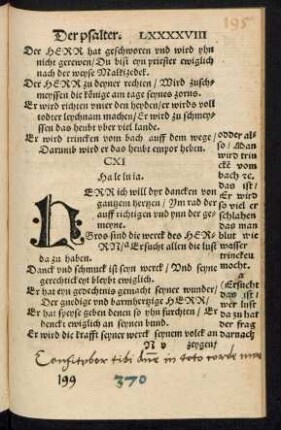 Der psalter. LXXXXVIII
195
Der HERR hat geschworen vnd wird yhn
nicht gerewen/ Du bist eyn priester ewiglich
nach der weyse Malkizedek.
Der HERR zu deyner rechten/ Wird zusch-
meyssen die könige am tage seynes zorns.
Er wird richten vnter den heyden/ er wirds voll
todter leychnam machen/ Er wird zu schmey-
ssen das heubt vber viel lande.
Er wird trincken vom bach auff dem wege
Darumb wird er das heubt empor heben.
CXI
Ha le lu ia.
HERR ich will dyr dancken von
gantzem hertzen/ Ym rad der
auff richtigen vnd ynn der ge-
meyne.
Gros sind die werck des HER-
RN/ a Er sucht allen die lust
da zu haben.
Danck vnd schmuck ist seyn werck/ Vnd seyne
gerechtickeyt bleybt ewiglich.
Er hat eyn gedechtnis gemacht seyner wunder/
Der gnedige vnd barmhertzige HERR/
Er hat speyse geben denen so yhn furchten/ Er
denckt ewiglich an seynen bund.
Er wird die krafft seyner werck seynem volck an
N v zeygen/
odder al-
so/ Man
wird trin
cken vom
bach etc.
das ist/
Er wird
so viel er
schlahen
das man
blut wie
wasser
trincken
mocht.
a
(Ersucht
das ist/
wer lust
da zu hat
der frag
darnach
Confiteber tibi dñe in toto corde meo
199
370